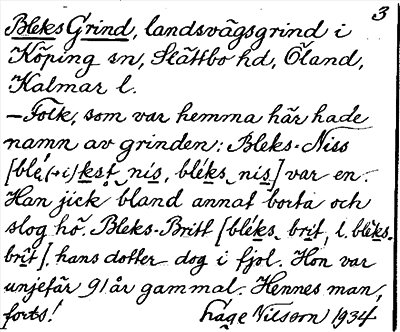 3
Bleks Grind, landsvägsgrind i
Köping sn, Slättbo hd, Öland,
Kalmar l.
–Folk, som var hemma här hade
namn av grinden: Bleks-Niss
[blé,(→i)kst nís, bléks nis] var en.
Han jick bland annat borta och
slog hö. Bleks-Britt [bléks brit, l. blèks-
brit], hans dotter dog i fjol. Hon var
unjefär 91 år gammal. Hennes man,
forts! Håge Nilsson 1934